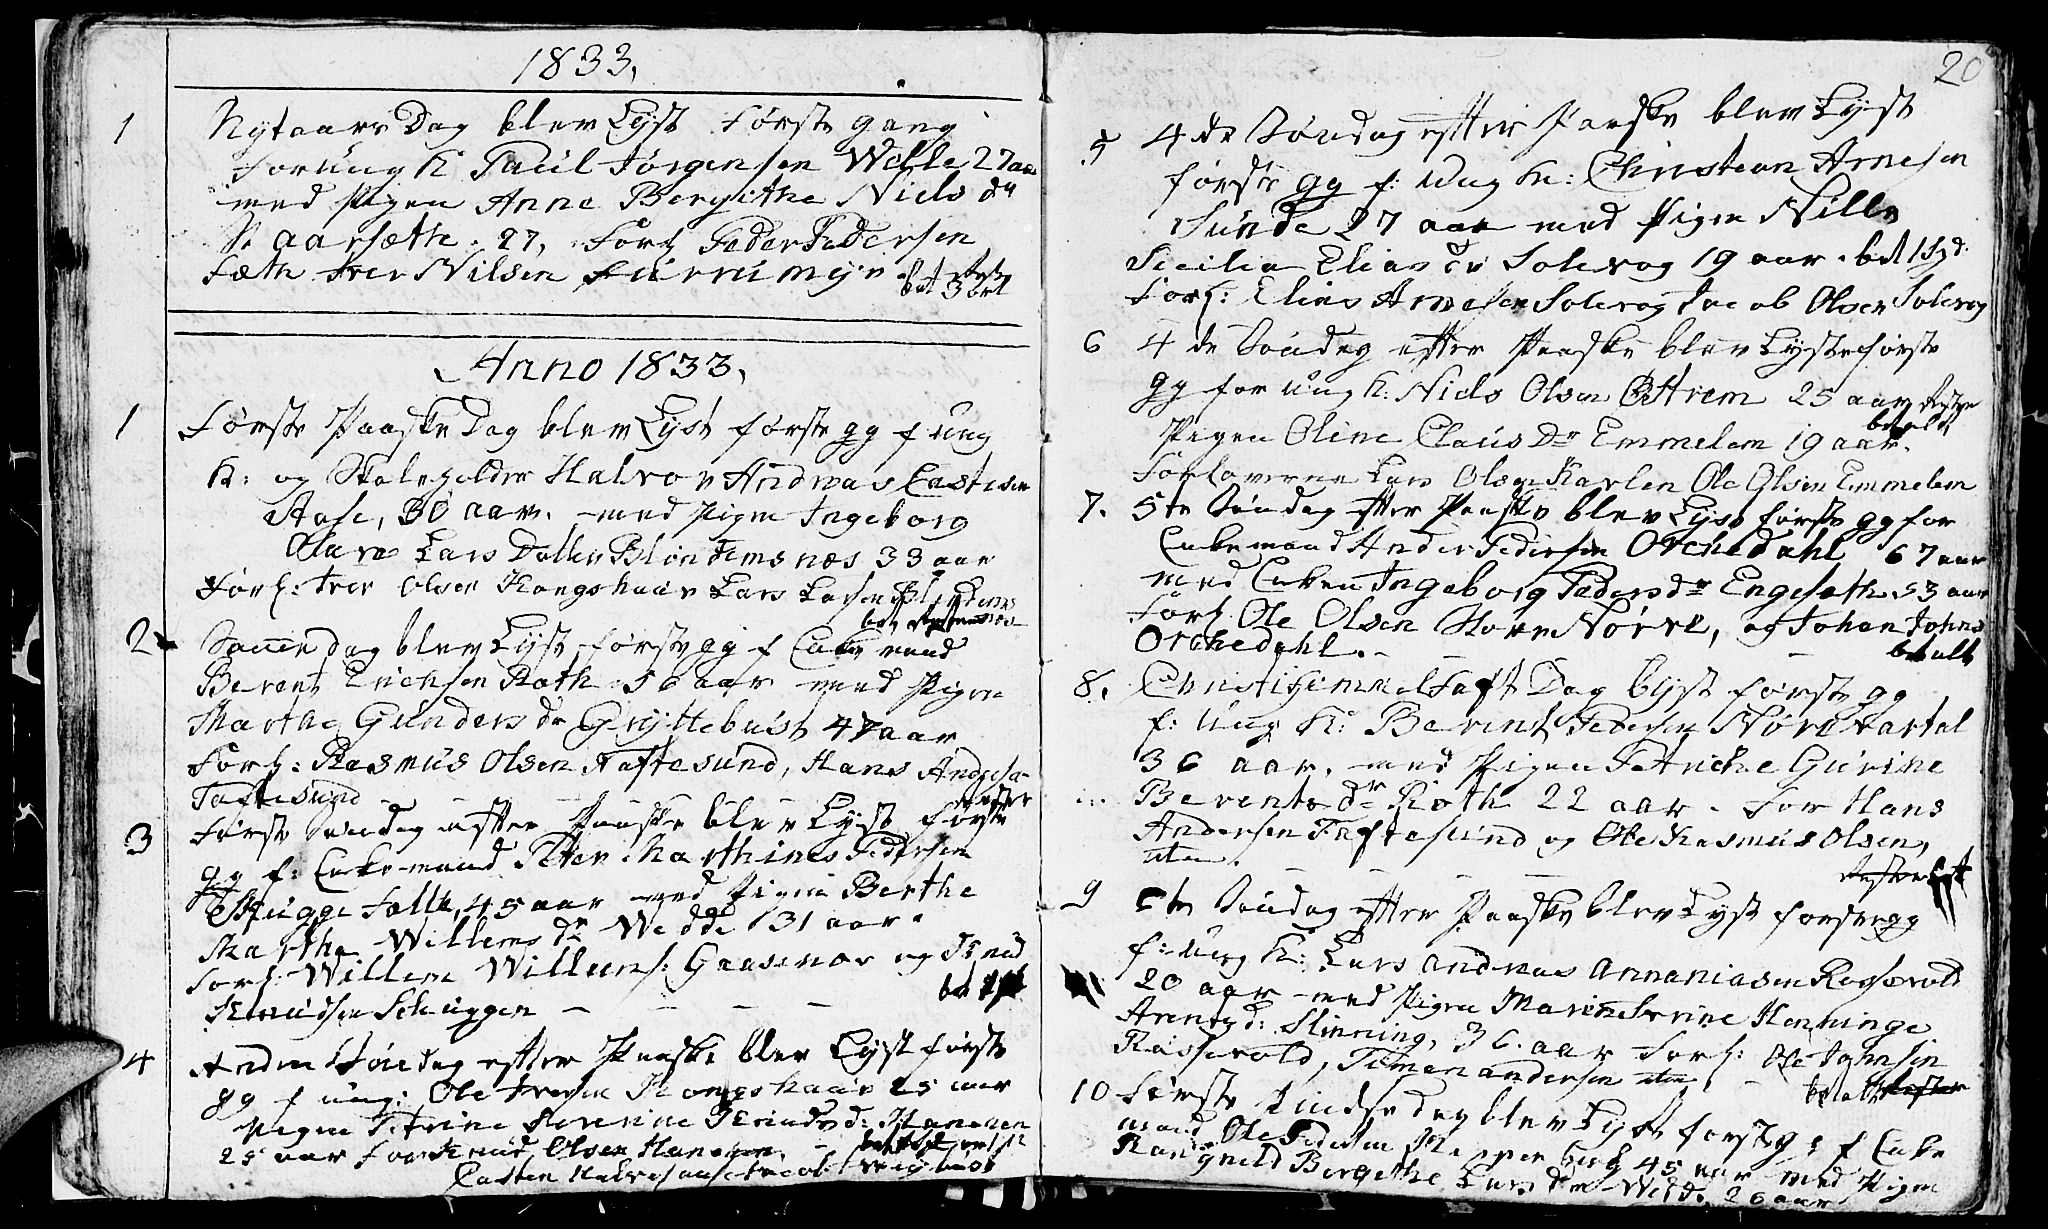 1833,
1 Nytaars Dag blev Lyst Første gang
for ung K Paul Jørgensen Wille 27 aar
med Pigen Anne Bergithe Niels dr
Aarsæth. 27, Forl Peder Pedersen
Sæth Iver Nilsen
bet 3 ort
Anno 1833,
1 Første Paaske Dag blev Lyst første gg f ung
K: og Skoleholder Halvor Andreas Castesen
Aase, 30 aar. med Pigen Ingeborg
Olave Lars Datter Blindemsnæs 33 aar
Forl: Iver Olsen Kongshaav Lars Larsen Blindems
2 Samme dag blev Lyst første gg f Enke mand
Berent Erichsen Roth 56 aar med Pigen
Marthe Gunders dr Gryttebust 47 aar
Forl: Rasmus Olsen Taftesund, Hans Andersen
Taftesund - - - - - rester
3 Første Søndag efter Paaske blev Lyst første
gg f: Enkemand Peter Marthines Pedersen
45 aar med Pigen Berthe
Marthe Willems dr Wedde 31 aar.
Forl: Willem Willems: Gaasenor og Knud
Knudsen Schuggen - - - -
4 Anden Søndag efter Paaske blev Lyst første
gg f ung: Ole Iversen Kongshaav 25 aar
Pigen Petrine Severine Knuds d: Hanesen
25 aar For Knud Olsen Hanesen
Casten
20
5 4 de Søndag efter Paaske blev Lyst
første gg f: Ung K: Christian Arnesen
Sunde 27 aar med Pigen Nille
Sicilia Elias dr Solevog 19 aar. bet 1 Spd:
Forl: Elias Arnesen Solevog Jacob Olsen Solevog
6 4 de Søndag efter Paaske blev Lyst første
gg for ung K: Niels Olsen 25 aar
betalt
Pigen Oline Claus Dr Emmelem 19 aar.
Forloverne Lars Olsen Ole Olsen Emmelem
7. 5te Søndag efter Paaske blev Lyst første gg for
Enkemand Ander Pedersen Orchedahl 67 aar
med Enken Ingeborg Peders dr Engesæth 53 aar
Forl Ole Olsen Nørve, og Johan Johns
Orchedahl. - - betalt
8. Christi Himmelfart Dag lyst første gg
f: Ung K: Berent Pedersen
36 aar. med Pigen Petricke Gurine
Berents dr Roth 22 aar. For Hans
Andersen Taftesund og Ole Rasmus Olsen,
- - - - -
9 6te Søndag efter Paaske blev Lyst første gg
f: Ung K: Lars Andreas Annaniasen Rogsevold
20 aar med Pigen Henninge
Arents d: Slinning, 36. aar Forl: Ole Johnsen
Andersen
10 Første Pindse dag blev Lyst første g: f Enke
mand Ole Pedersen 45 aar med Pigen
Rangneld Bergethe Lars dr Wedde 26 aar